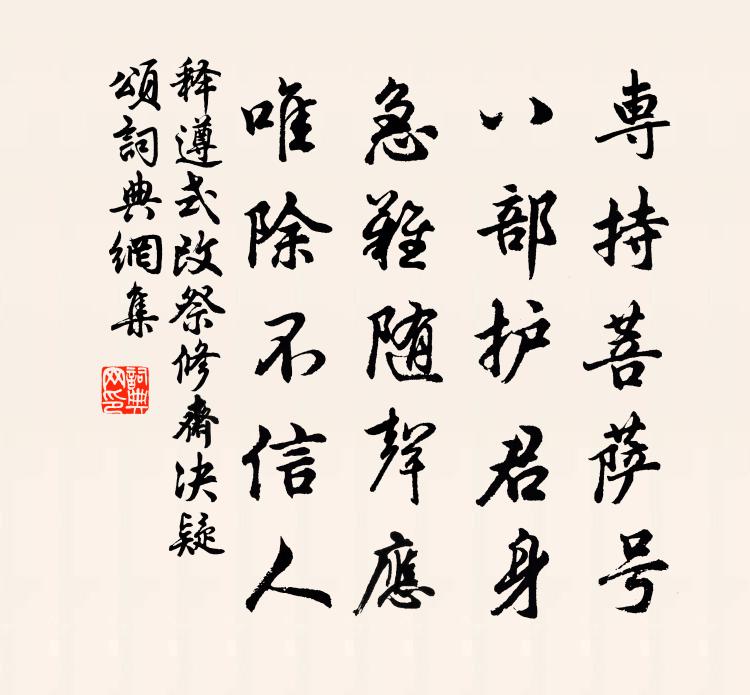 専持菩萨号
八部护君身
急難随聲應
唯除不信人
释遵式改祭修齋决疑
頌詞典網集
詞典网印